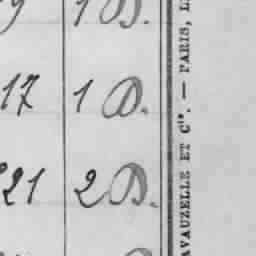 9 1 D.
17 1 D.
21 2 D.
AVAUZELLE ET Cie. — PARIS, L